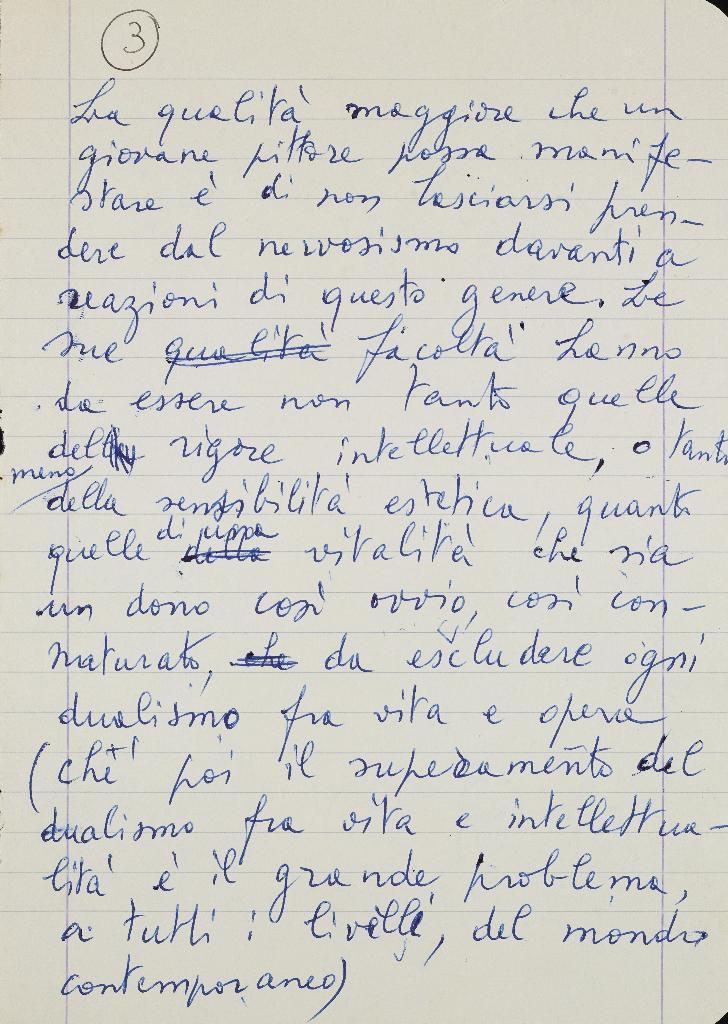 3
La qualità maggiore che un
giovane pittore possa manife-
stare è di non lasciarsi pren-
dere dal nervosismo davanti a
reazioni di questo genere. Le
sue qualità facoltà hanno
da essere non tanto quelle
del rigore intellettuale, o tanto
meno
della sensibilità estetica, quanto
di una
quelle della vitalità che sia
un dono così ovvio, così con-
naturato, che da escludere ogni
dualismo fra vita e opera
(ché poi il superamento del
dualismo fra vita e intellettua-
lità è il grande problema,
a tutti i livelli, del mondo
contemporaneo)